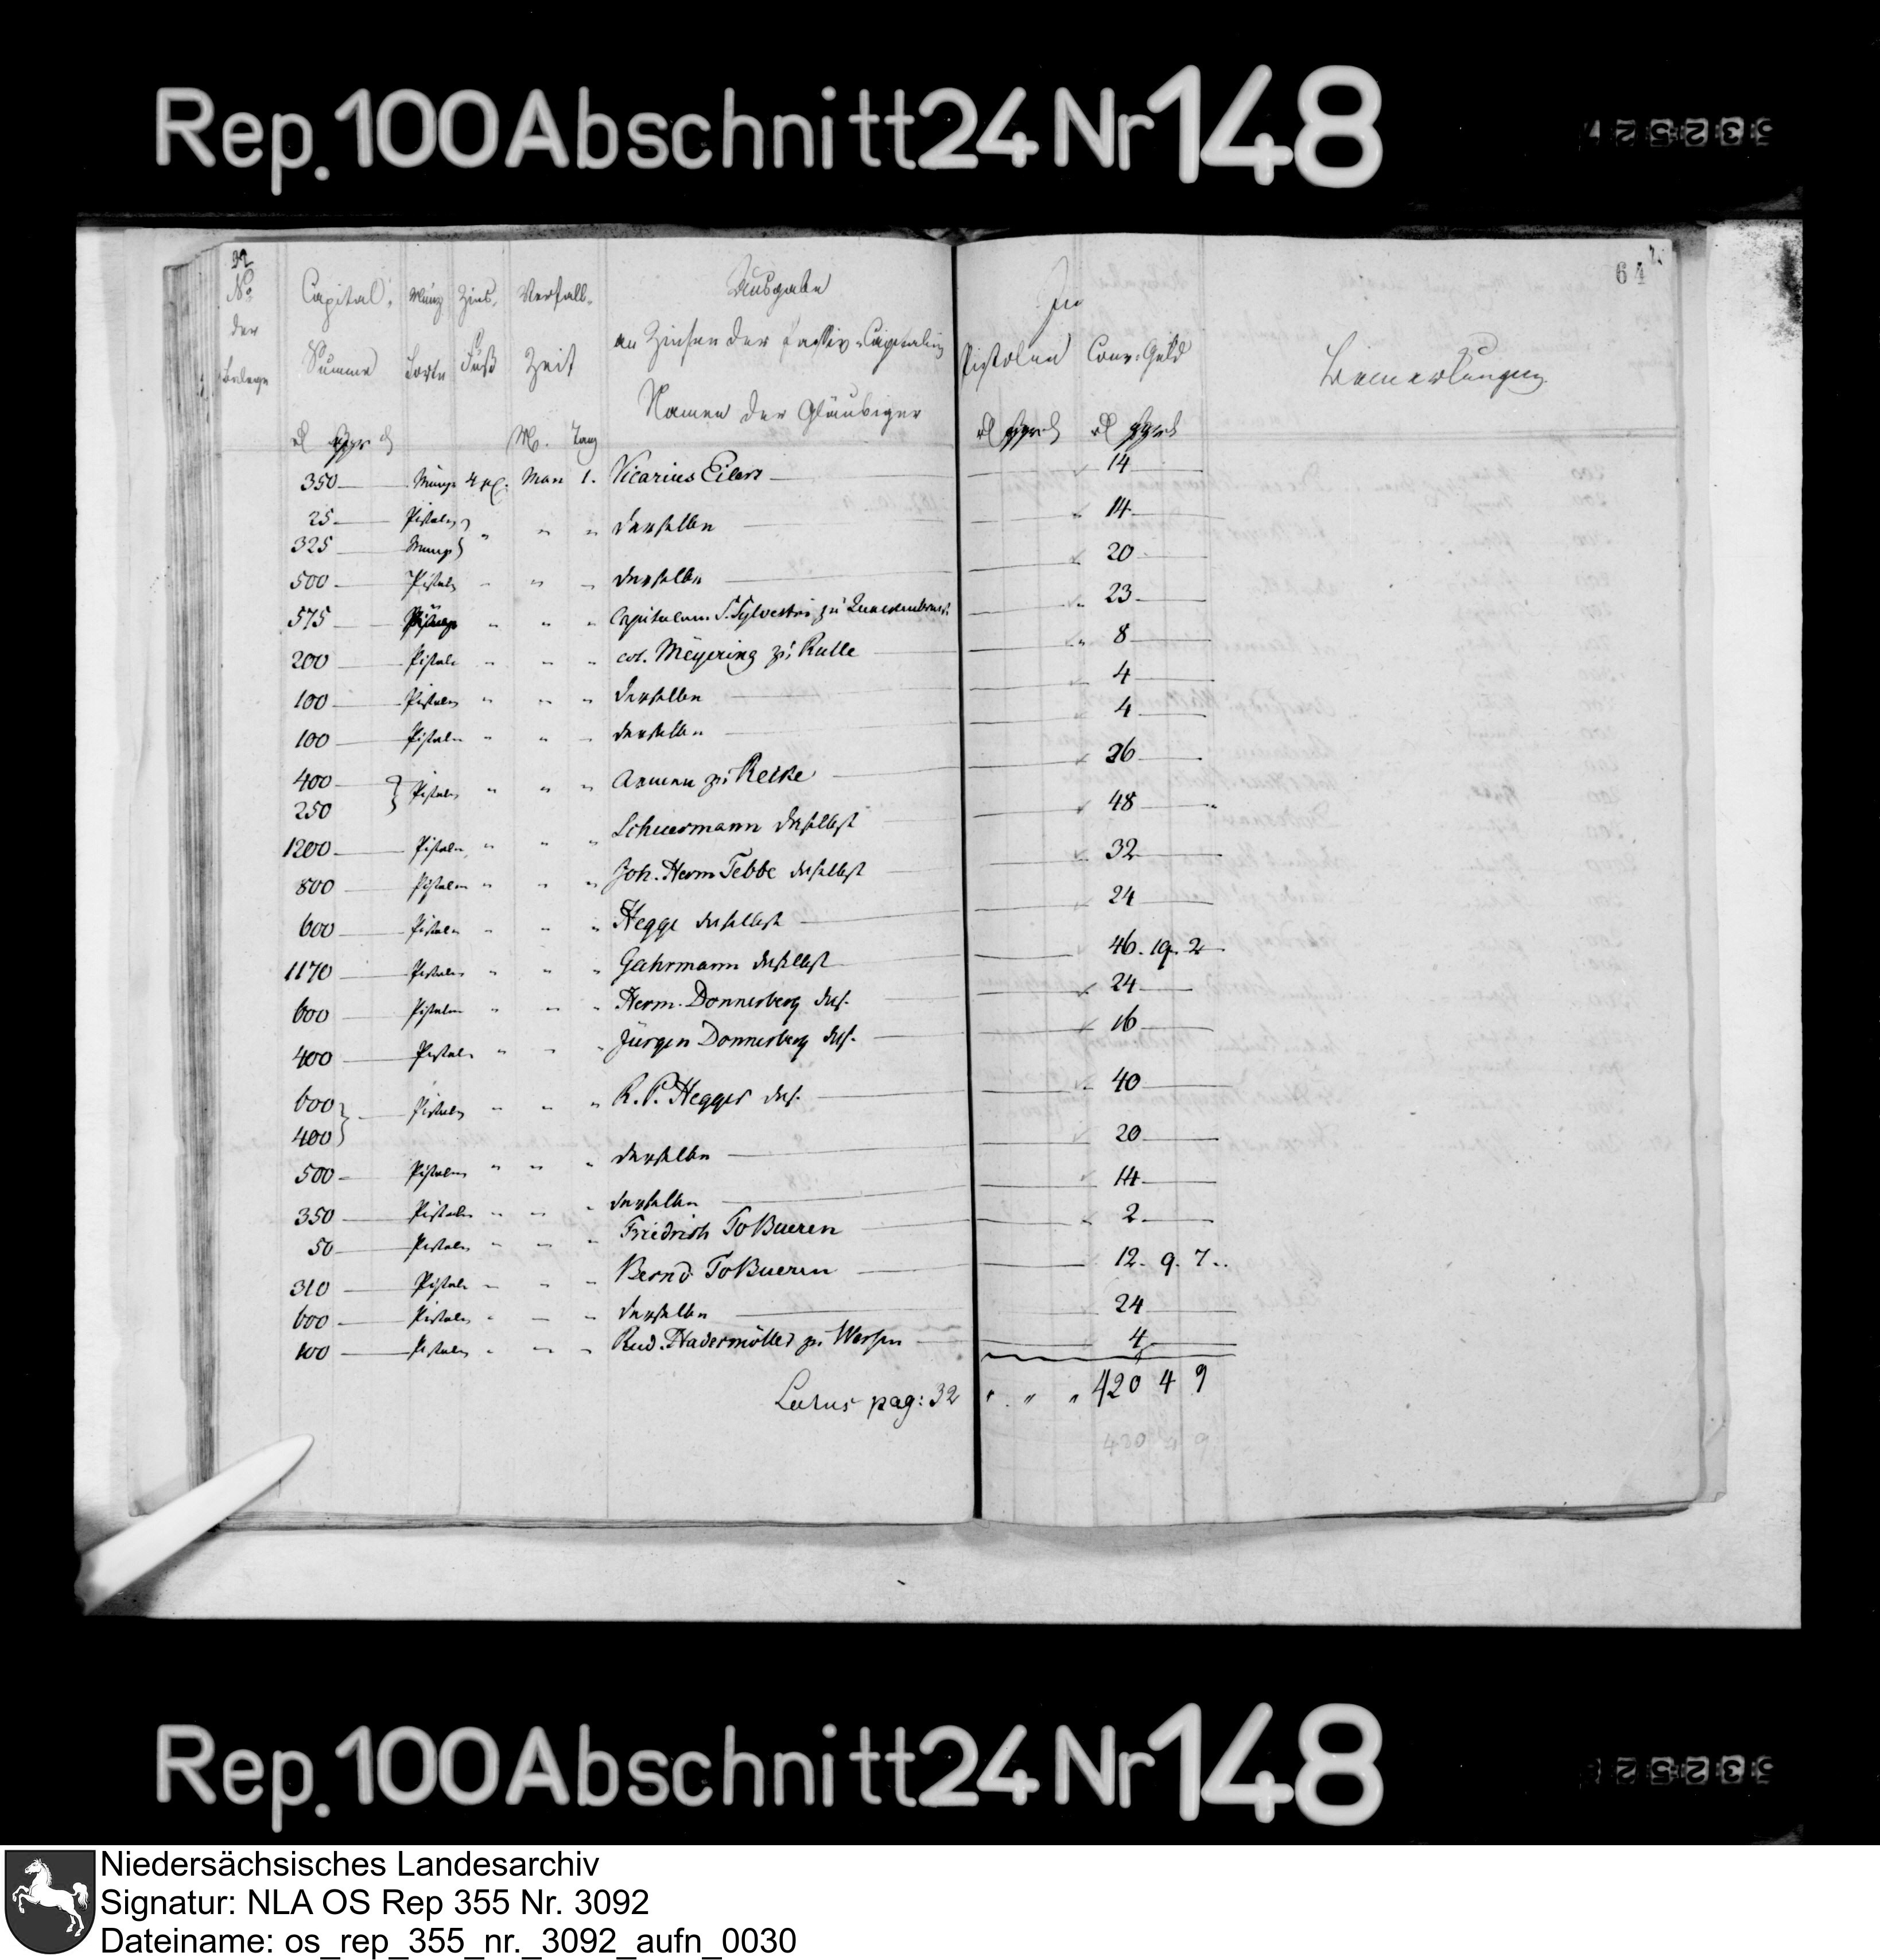 Rep. 100 Abschnitt 24 Nr 148
53252
32
64
No. Capital. Münz Zins. Verfall. Ausgabe In
der an Zinsen der Passiv-Capitalien
Belege Summe Sorte Fuß Zeit Pistolen Conv: Geld Bemerkungen
Namen der Gläubiger
M. Tag
350 Münze 4 pC. Mai 1. Vicarius Eilers 14
25 Pistolen } " " " derselbe 14
325 Münze
500 Pistolen " " " derselbe 20
575 " " " Capitulum S. Sylvestri zu Quackenbrück 23
200 Pistolen " " " col. Meyering zu Rulle 8
100 Pistolen " " " derselbe 4
100 Pistolen " " " derselbe 4
400 } Pistolen " " " Armen zu Recke 26
250
1200 Pistolen " " " Schuermann daselbst 48
800 Pistolen " " " Joh. Herm Tebbe daselbst 32
600 Pistolen " " " Hegge daselbst 24
1170 Pistolen " " " Gahrmann daselbst 46. 19. 2
600 Pistolen " " " Herm. Donnerberg das. 24
400 Pistolen " " " Jürgen Donnerberg das. 16
600 } Pistolen " " " R. P. Hegger das. 40
400
500 Pistolen " " " derselbe 20
350 Pistolen " " " derselbe 14
50 Pistolen " " " Friedrich To Bueren 2
310 Pistolen " " " Bernd To Bueren 12. 9. 7
600 Pistolen " " " derselbe 24
100 Pistolen " " " Rud. Hadermöller zu Wersen 4
Latus pag: 32 " " " 420 4 9
420 4 9
Rep. 100 Abschnitt 24 Nr 148
53252
Niedersächsisches Landesarchiv
Signatur: NLA OS Rep 355 Nr. 3092
Dateiname: os_rep_355_nr._3092_aufn_0030